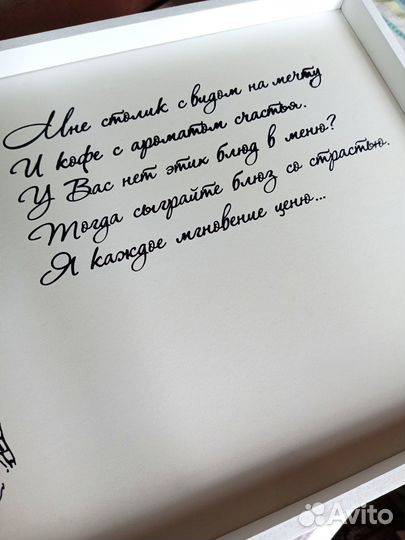 Мне столик с видом на мечту
И кофе с ароматом счастья.
У Вас нет этих блюд в меню?
Тогда сыграйте блюз со страстью.
Я каждое мгновение ценю...
Avito